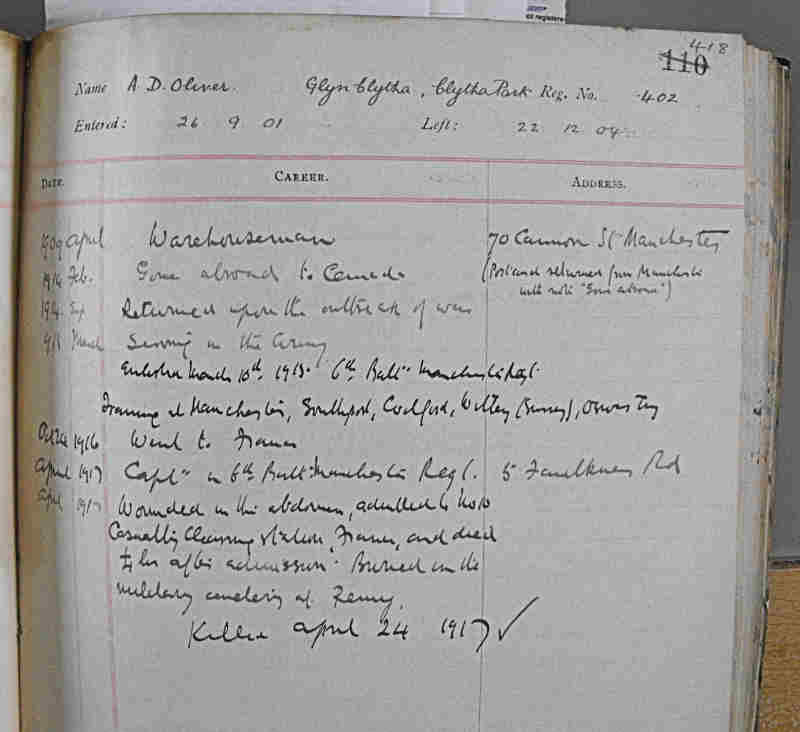 418
110
Name A. D. Oliver. Glyn-Clytha, Clytha Park Reg. No. 402
Entered: 26 9 01 Left: 22 12 04
Date. CAREER. ADDRESS.
1909 April Warehouseman 70 Cannon St Manchester
1914 Feb. Gone abroad to Canada (Postcard returned from Manchester
with note "Gone abroad")
1914 Sep Returned upon the outbreak of war
1915 March Serving in the Army
Enlisted March 10th 1915. 6th Battn Manchester Regt.
Training at Manchester, Southport, Codford, Witley (Surrey), Oswestry
1916 Went to France
April 1917 Captn in 6th Batt Manchester Regt. 5 Faulkners Rd
April 1917 Wounded in the abdomen, admitted to No 10
Casualty Clearing Station, France, and died
hrs after admission. Buried in the
military cemetery at Remy.
Killed April 24 1917 ✓